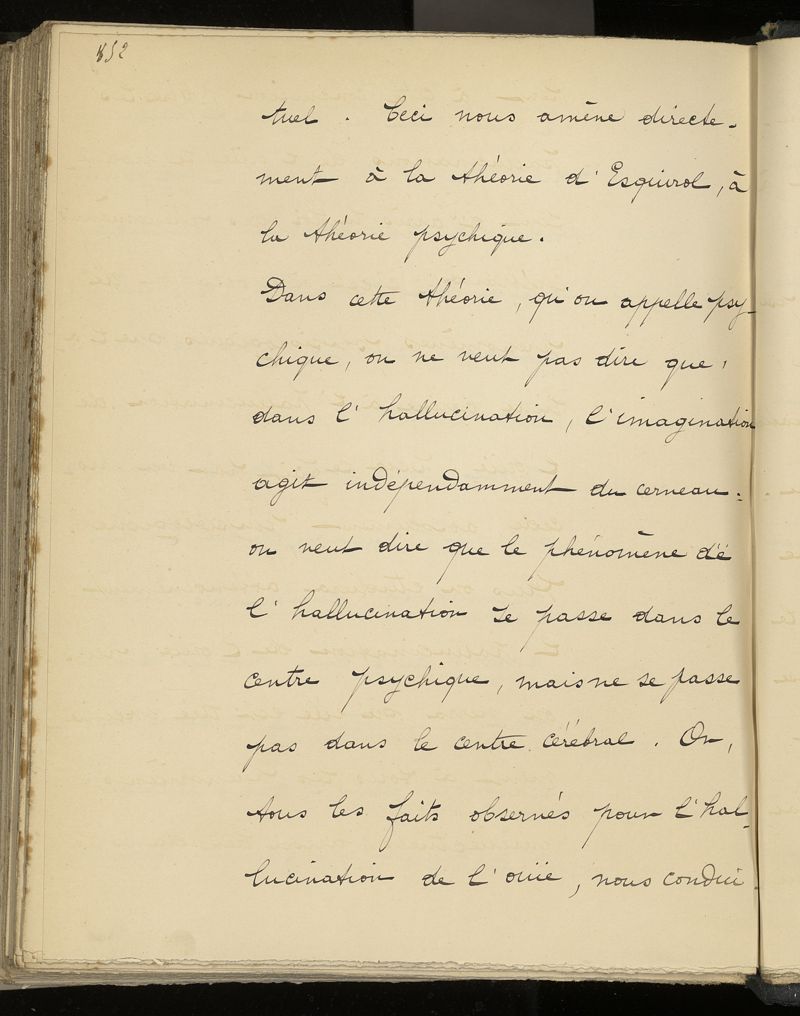 852
tuel. Ceci nous amène directe-
ment à la théorie d'Esquirol, à
la théorie psychique.
Dans cette théorie, qu'on appelle psy-
chique, on ne veut pas dire que,
dans l'hallucination, l'imagination
agit indépendamment du cerveau :
on veut dire que le phénomène de
l'hallucination se passe dans le
centre psychique, mais ne se passe
pas dans le centre cérébral. Or,
tous les faits observés pour l'hal-
lucination de l'ouïe, nous condui-